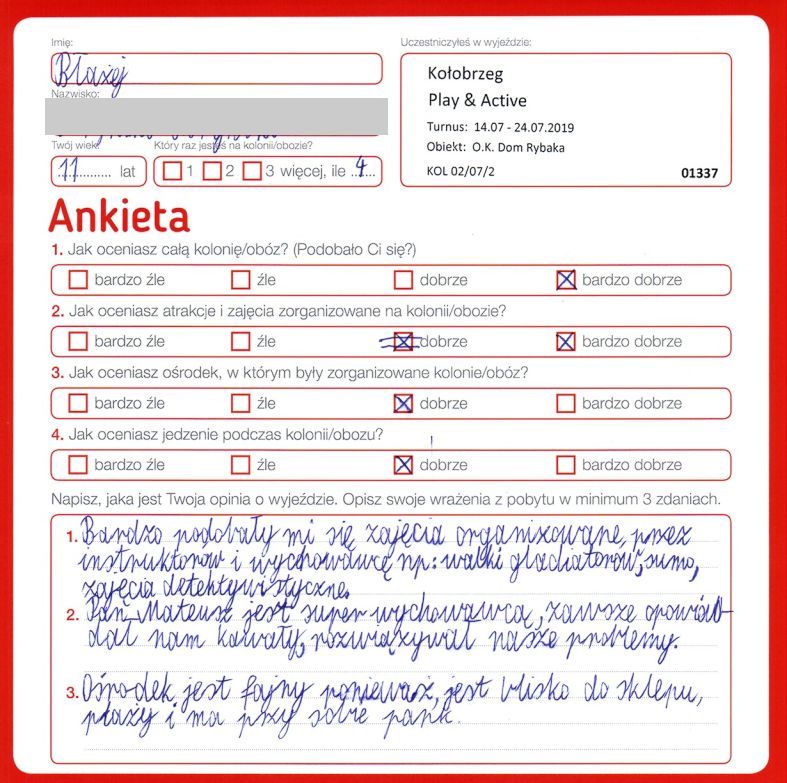 Imię:
Błażej
Nazwisko:
Twój wiek:
Który raz jesteś na kolonii/obozie?
11 lat
1 2 3 więcej, ile 4
Uczestniczyłeś w wyjeździe:
Kołobrzeg
Play & Active
Turnus: 14.07 - 24.07.2019
Obiekt: O.K. Dom Rybaka
KOL 02/07/2
01337
Ankieta
1. Jak oceniasz całą kolonię/obóz? (Podobało Ci się?)
bardzo źle źle dobrze bardzo dobrze
2. Jak oceniasz atrakcje i zajęcia zorganizowane na kolonii/obozie?
bardzo źle źle dobrze bardzo dobrze
3. Jak oceniasz ośrodek, w którym były zorganizowane kolonie/obóz?
bardzo źle źle dobrze bardzo dobrze
4. Jak oceniasz jedzenie podczas kolonii/obozu?
bardzo źle źle dobrze bardzo dobrze
Napisz, jaka jest Twoja opinia o wyjeździe. Opisz swoje wrażenia z pobytu w minimum 3 zdaniach.
1. Bardzo podobały mi się zajęcia organizowane, przez
instruktorów i wychowawcę np: walki gladiatorów, sumo,
zajęcia detektywistyczne.
2. Pan Mateusz jest super wychowawcą, zawsze opowia-
dał nam kawały, rozwiązywał nasze problemy.
3. Ośrodek jest fajny ponieważ, jest blisko do sklepu,
plaży i ma przy sobie park.